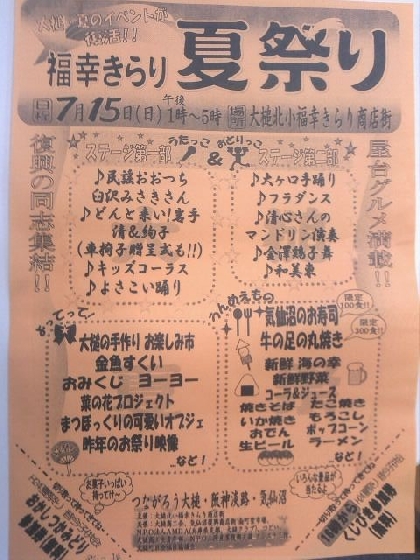 大槌、夏のイベントが
復活!!
福幸きらり 夏祭り
日程 7月15日(日) 午後1時～5時 場所 大槌北小福幸きらり商店街
復興の同志集結!!
屋台グルメ満載!!
うたっこ & おどりっこ
ステージ第一部
♪民謡おおつち
臼沢みさきさん
♪どんと来い!岩手
清&絢子
(車椅子贈呈式も!!)
♪キッズコーラス
♪よさこい踊り
ステージ第二部
♪大ヶ口手踊り
♪フラダンス
♪清心さんの
マンドリン演奏
♪金澤鶏子舞
♪和美東
大槌の手作り お楽しみ市
金魚すくい
おみくじ ヨーヨー
菜の花プロジェクト
まつぼっくりの可愛いオブジェ
昨年のお祭り映像
…など!
うんめえもの
気仙沼のお寿司
限定
100食!!
牛の足の丸焼き
限定
300食!!
新鮮 海の幸
新鮮野菜
コーラ&ジュース
焼きそば たこ焼き
いか焼き もろこし
おでん ポップコーン
生ビール ラーメン
…など!
お菓子いっぱい
持ってけ～
いろんな景品が
当たるよ
つながろう大槌・阪神淡路・気仙沼